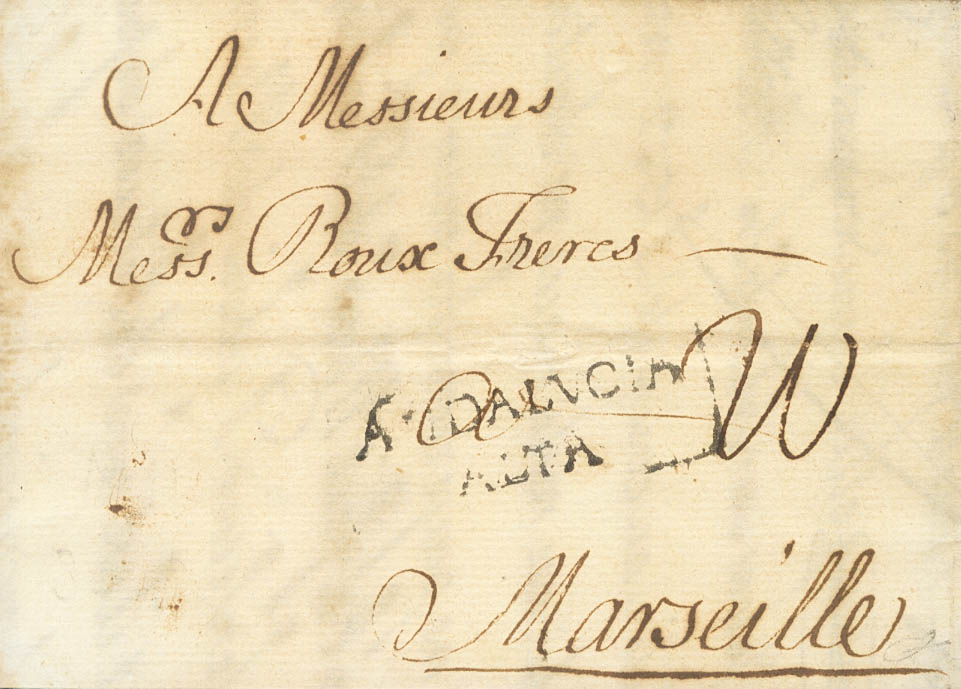 A Messieurs
Messrs. Roux Freres
a
ANDALVCIA
ALTA
Marseille